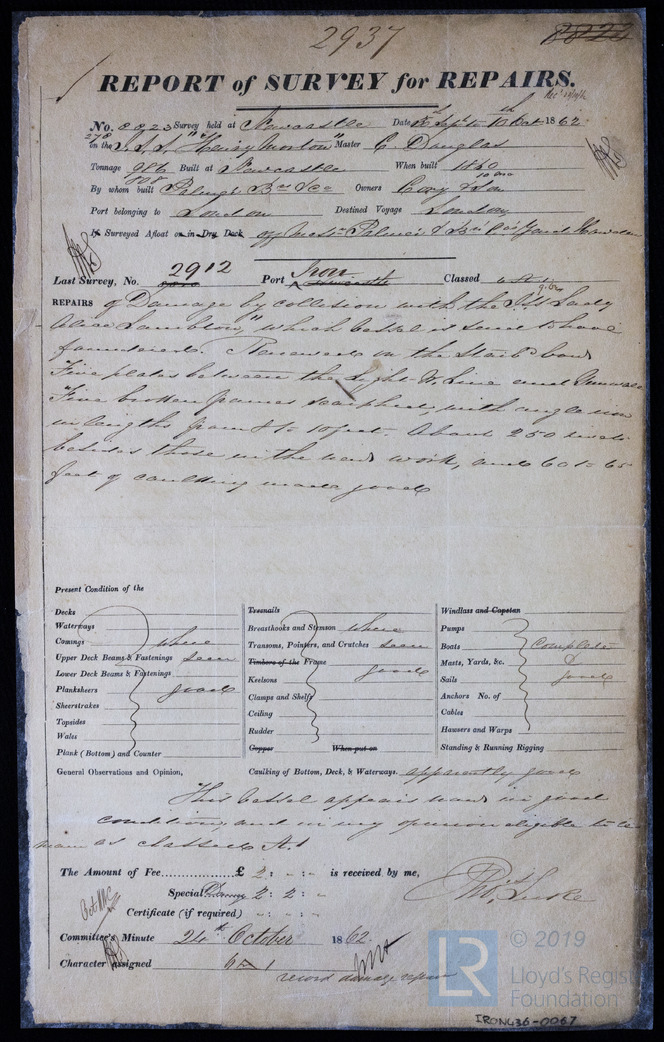 2937
REPORT of SURVEY for REPAIRS.
No. 8823 Survey held at Newcastle Date Sept to Oct 1862
on the S.S. "Henry Morton" Master C. Douglas
Tonnage 986 Built at Newcastle When built 1860
By whom built Palmer Bros & Co Owners Cory & Son
Port belonging to London Destined Voyage London
If Surveyed Afloat or in Dry Dock
Last Survey, No. 2912 Port Iron Classed
REPAIRS of Damage by collision with the S.S. Lady
Alice Lambton," which vessel is said to have
foundered. Renewed on the Starbd bow
Five plates between the Light W. Line and Gunwale
Five broken frames scarphed, with angle iron
in lengths from 8 to 10 feet. About 250 rivets
besides those in the new work, and 60 to 65
feet of caulking made good
Present Condition of the
Decks Treenails Windlass and Capstan
Waterways Breasthooks and Stemson where Pumps
Comings where Transoms, Pointers, and Crutches seen Boats Complete
Upper Deck Beams & Fastenings seen Timbers of the Frame Masts, Yards, &c. &
Lower Deck Beams & Fastenings Keelsons good Sails good
Planksheers good Clamps and Shelfs Anchors No. of
Sheerstrakes Ceiling Cables
Topsides Rudder Hawsers and Warps
Wales Copper When put on Standing & Running Rigging
Plank (Bottom) and Counter
General Observations and Opinion, Caulking of Bottom, Deck, & Waterways. apparently good
This vessel appears now in good
condition, and in my opinion eligible to re
main as classed A.1
The Amount of Fee £ 2 : - : - is received by me,
Special Damage 2 : 2 : -
Certificate (if required) - : - : -
Committee's Minute 24th October 1862.
Character assigned
record damage repair
LR © 2019
Lloyd's Regist
Foundation
IRON436-0067